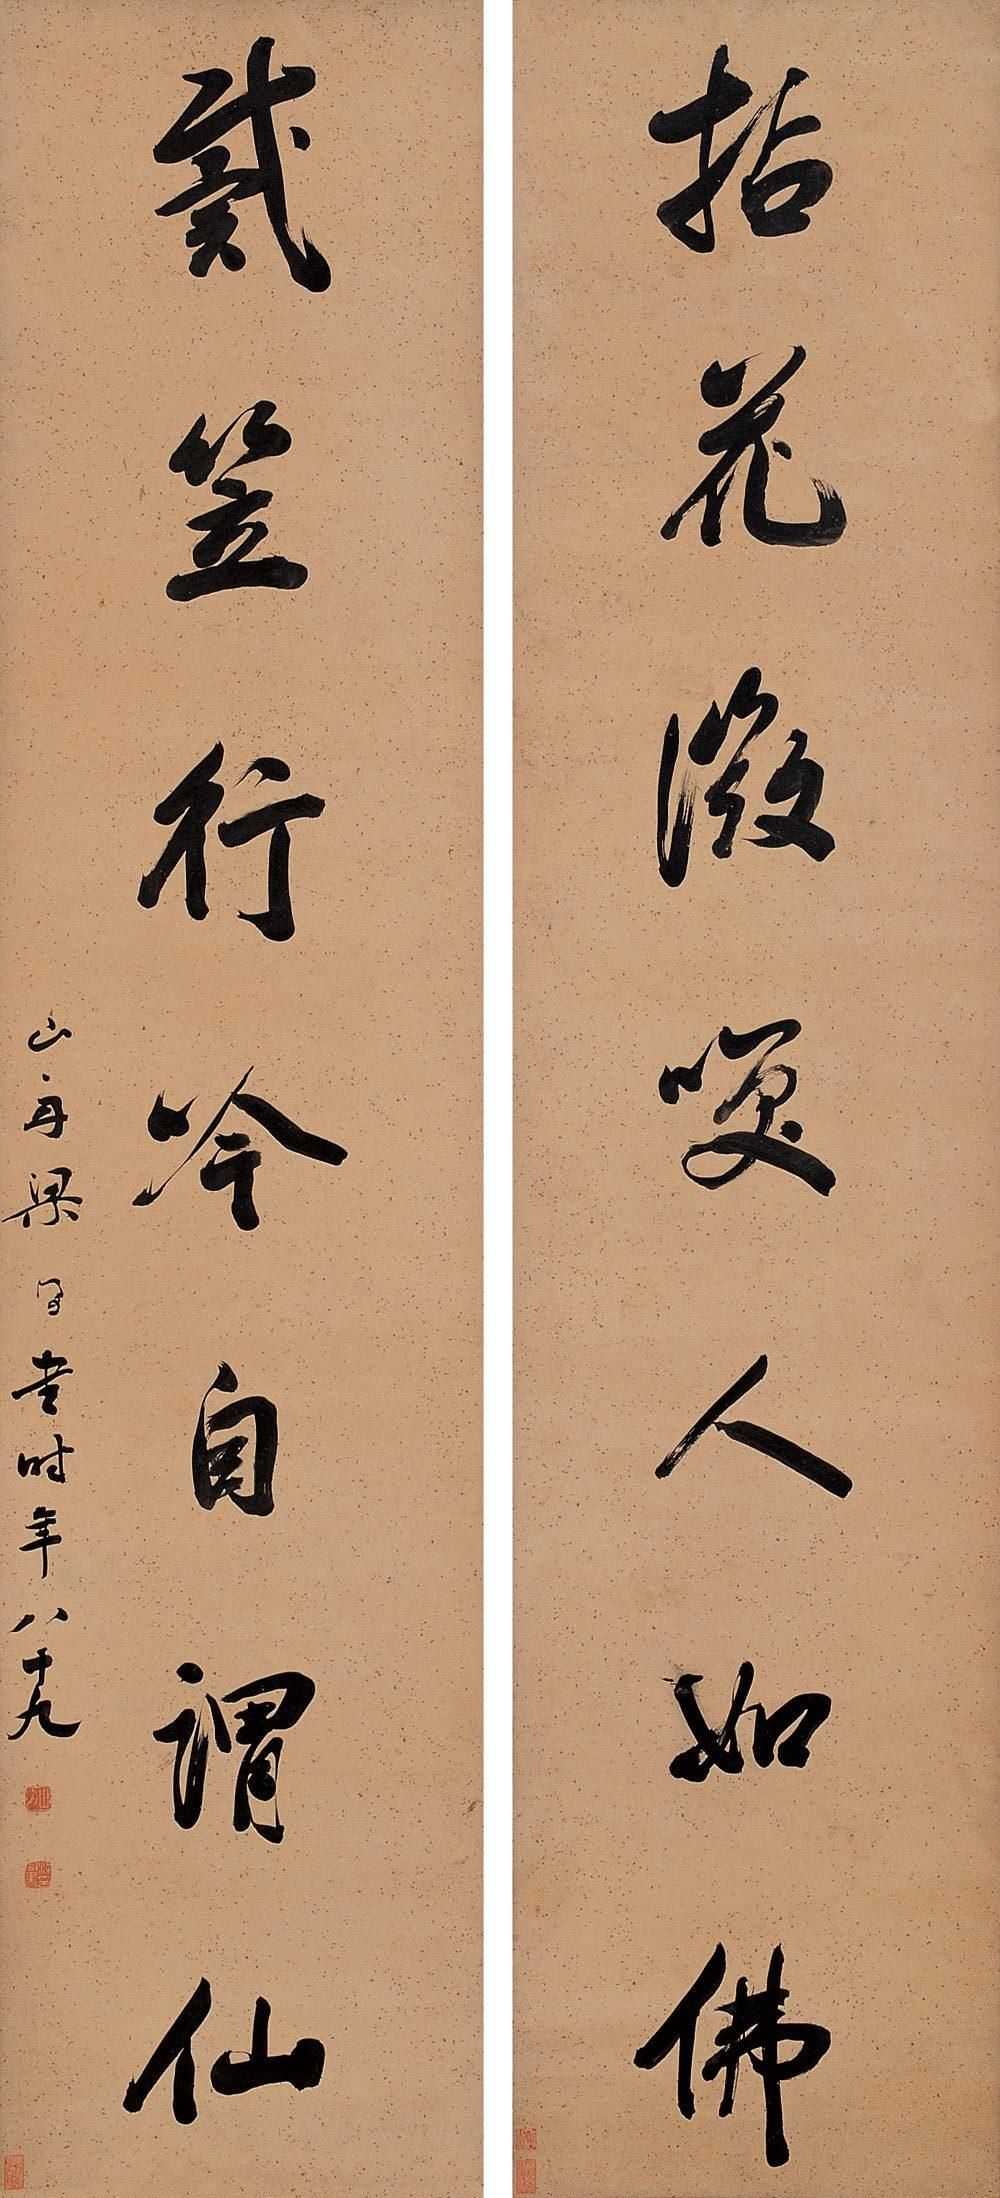 拈花微笑人如佛
戴笠行吟自謂仙
山舟梁同書時年八十九